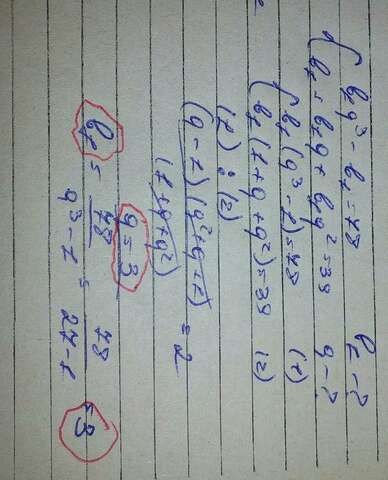 b₁q³ - b₁ = 78 b₁ - ?
b₁ = b₁q + b₁q² = 39 q - ?
b₁(q³ - 1) = 78 (1)
b₁(1 + q + q²) = 39 (2)
(1) : (2)
(q - 1)(q² + q + 1) = 2
(1 + q + q²)
q = 3
b₁ = 78 / q³ - 1 = 78 / 27 - 1 = 3